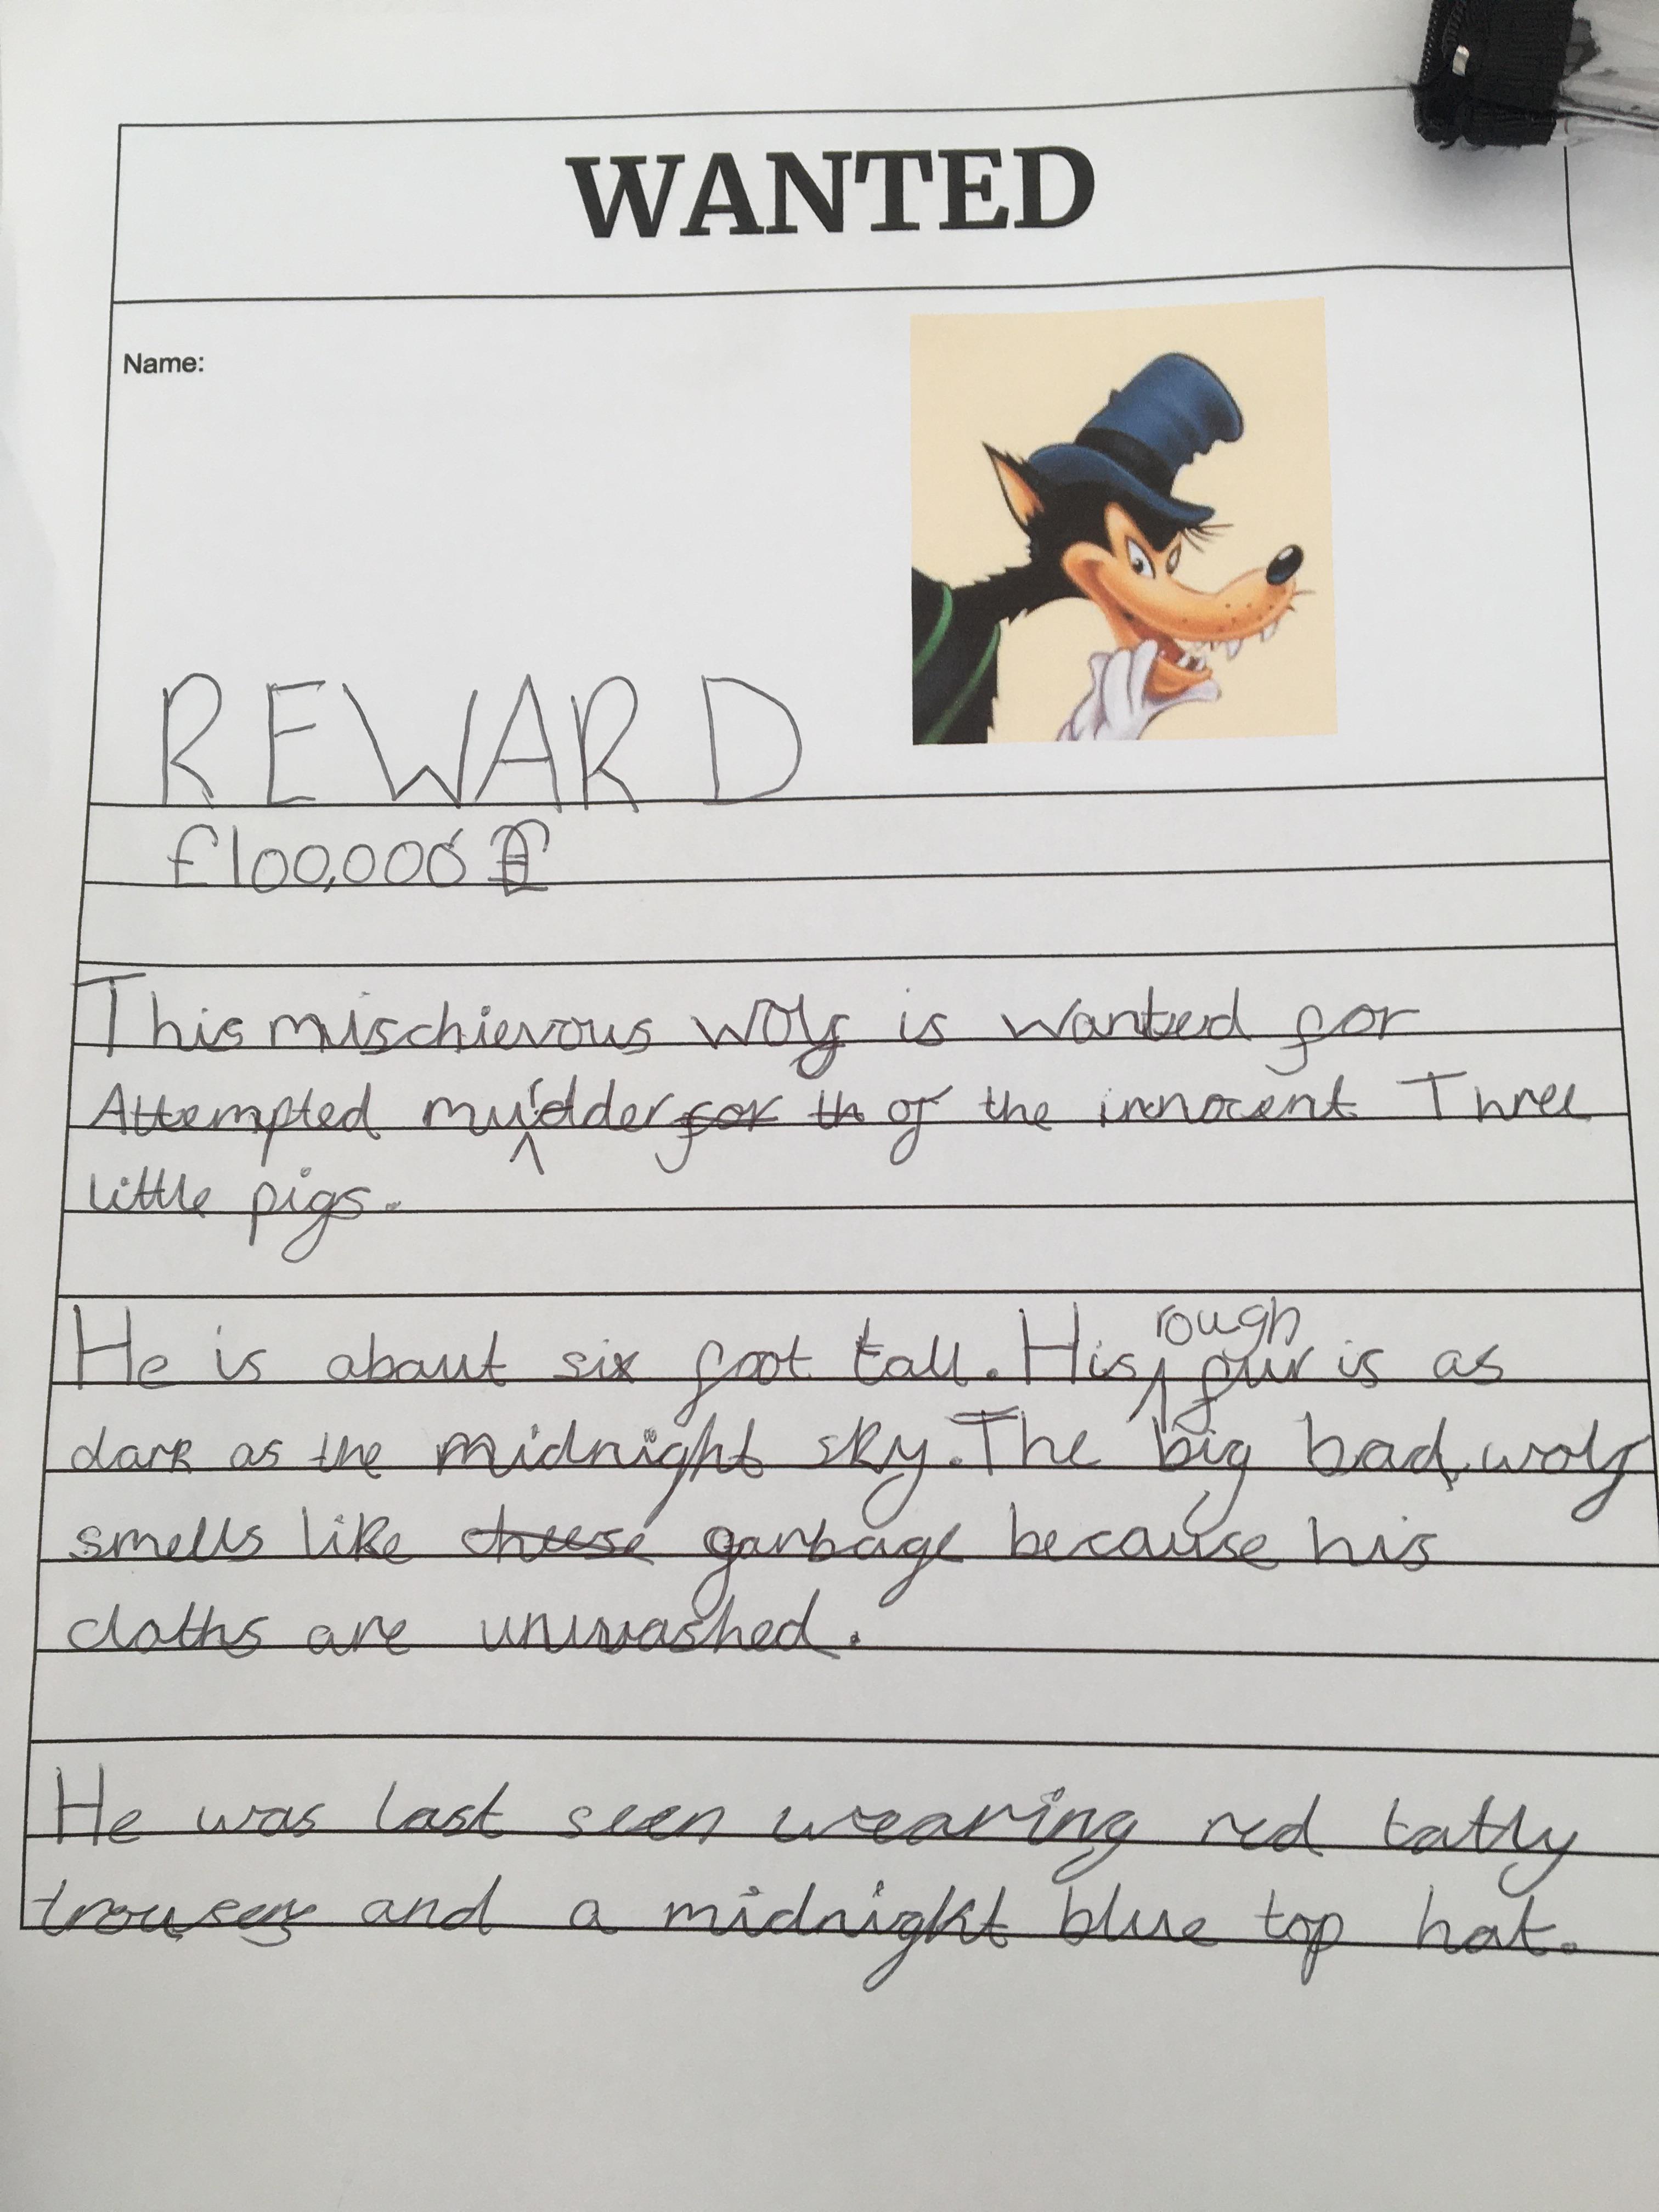 WANTED
Name:
REWARD
£100,000
This mischievous wolf is wanted for
Attempted murdder for th of the innocent Three
little pigs.
He is about six foot tall. His rough fur is as
dark as the midnight sky. The big bad, wolf
smells like cheese garbage because his
cloths are unwashed.
He was last seen wearing red tatty
trousers and a midnight blue top hat.